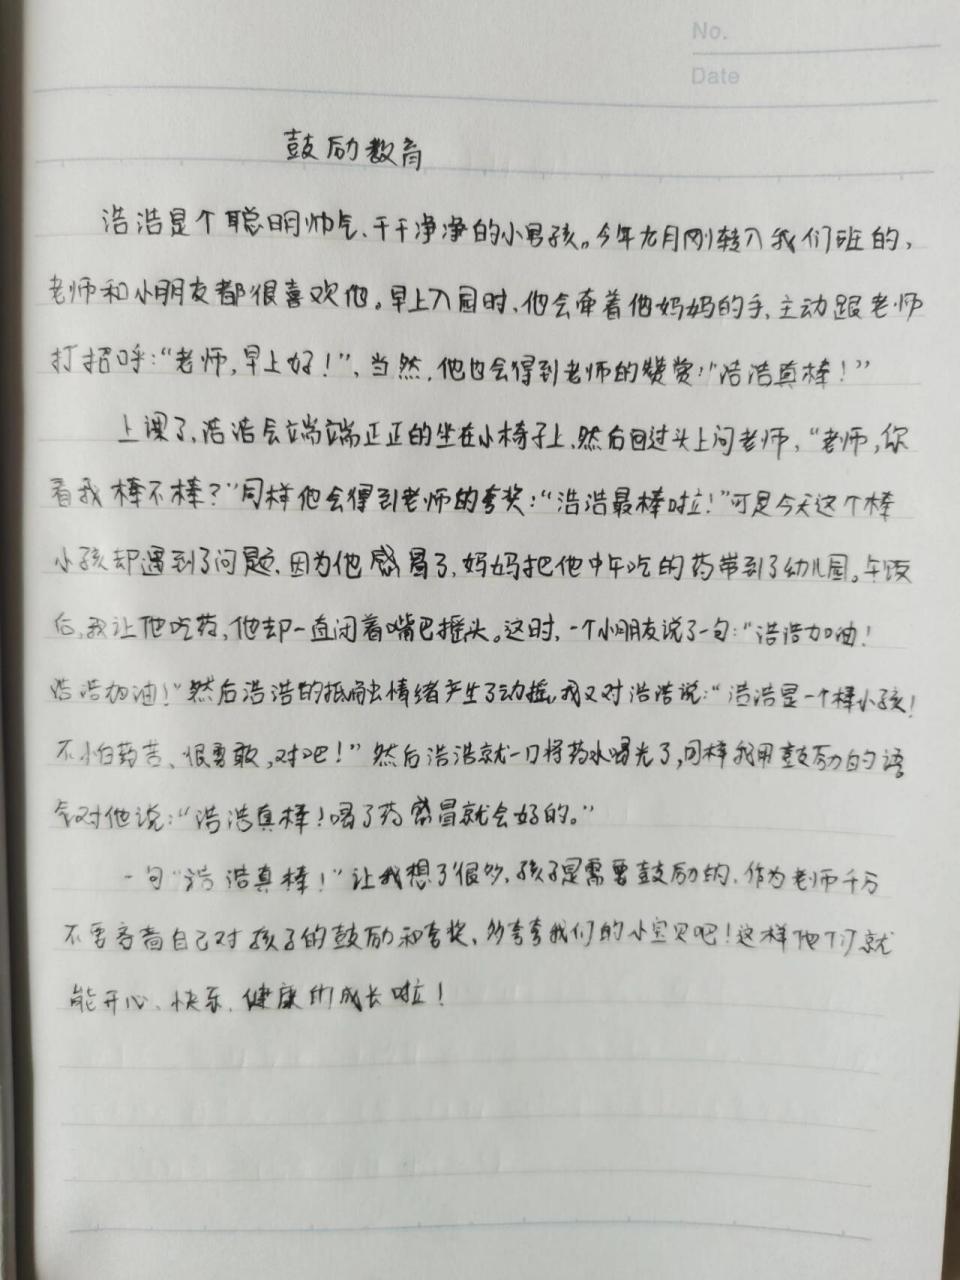 No.
Date
鼓励教育
浩浩是个聪明帅气、干干净净的小男孩。今年九月刚转入我们班的,
老师和小朋友都很喜欢他。早上入园时、他会牵着他妈妈的手,主动跟老师
打招呼:“老师,早上好!”、当然,他也会得到老师的赞赏:“浩浩真棒!”
上课了,浩浩会端端正正的坐在小椅子上、然后回过头上问老师,“老师,你
看我棒不棒?”同样他会得到老师的夸奖:“浩浩最棒啦!”可是今天这个棒
小孩却遇到了问题,因为他感冒了,妈妈把他中午吃的药带到了幼儿园。午饭
后,我让他吃药,他却一直闭着嘴巴摇头。这时,一个小朋友说了一句:“浩浩加油!
浩浩加油!”然后浩浩的抵触情绪产生了动摇,我又对浩浩说:“浩浩是一个棒小孩!
不怕药苦、很勇敢,对吧!”然后浩浩就一口将药水喝光了,同样我用鼓励的语
气对他说:“浩浩真棒!喝了药感冒就会好的。”
一句“浩浩真棒!”让我想了很多,孩子是需要鼓励的,作为老师千万
不要吝啬自己对孩子的鼓励和夸奖、多夸夸我们的小宝贝吧!这样他们就
能开心、快乐、健康的成长啦!